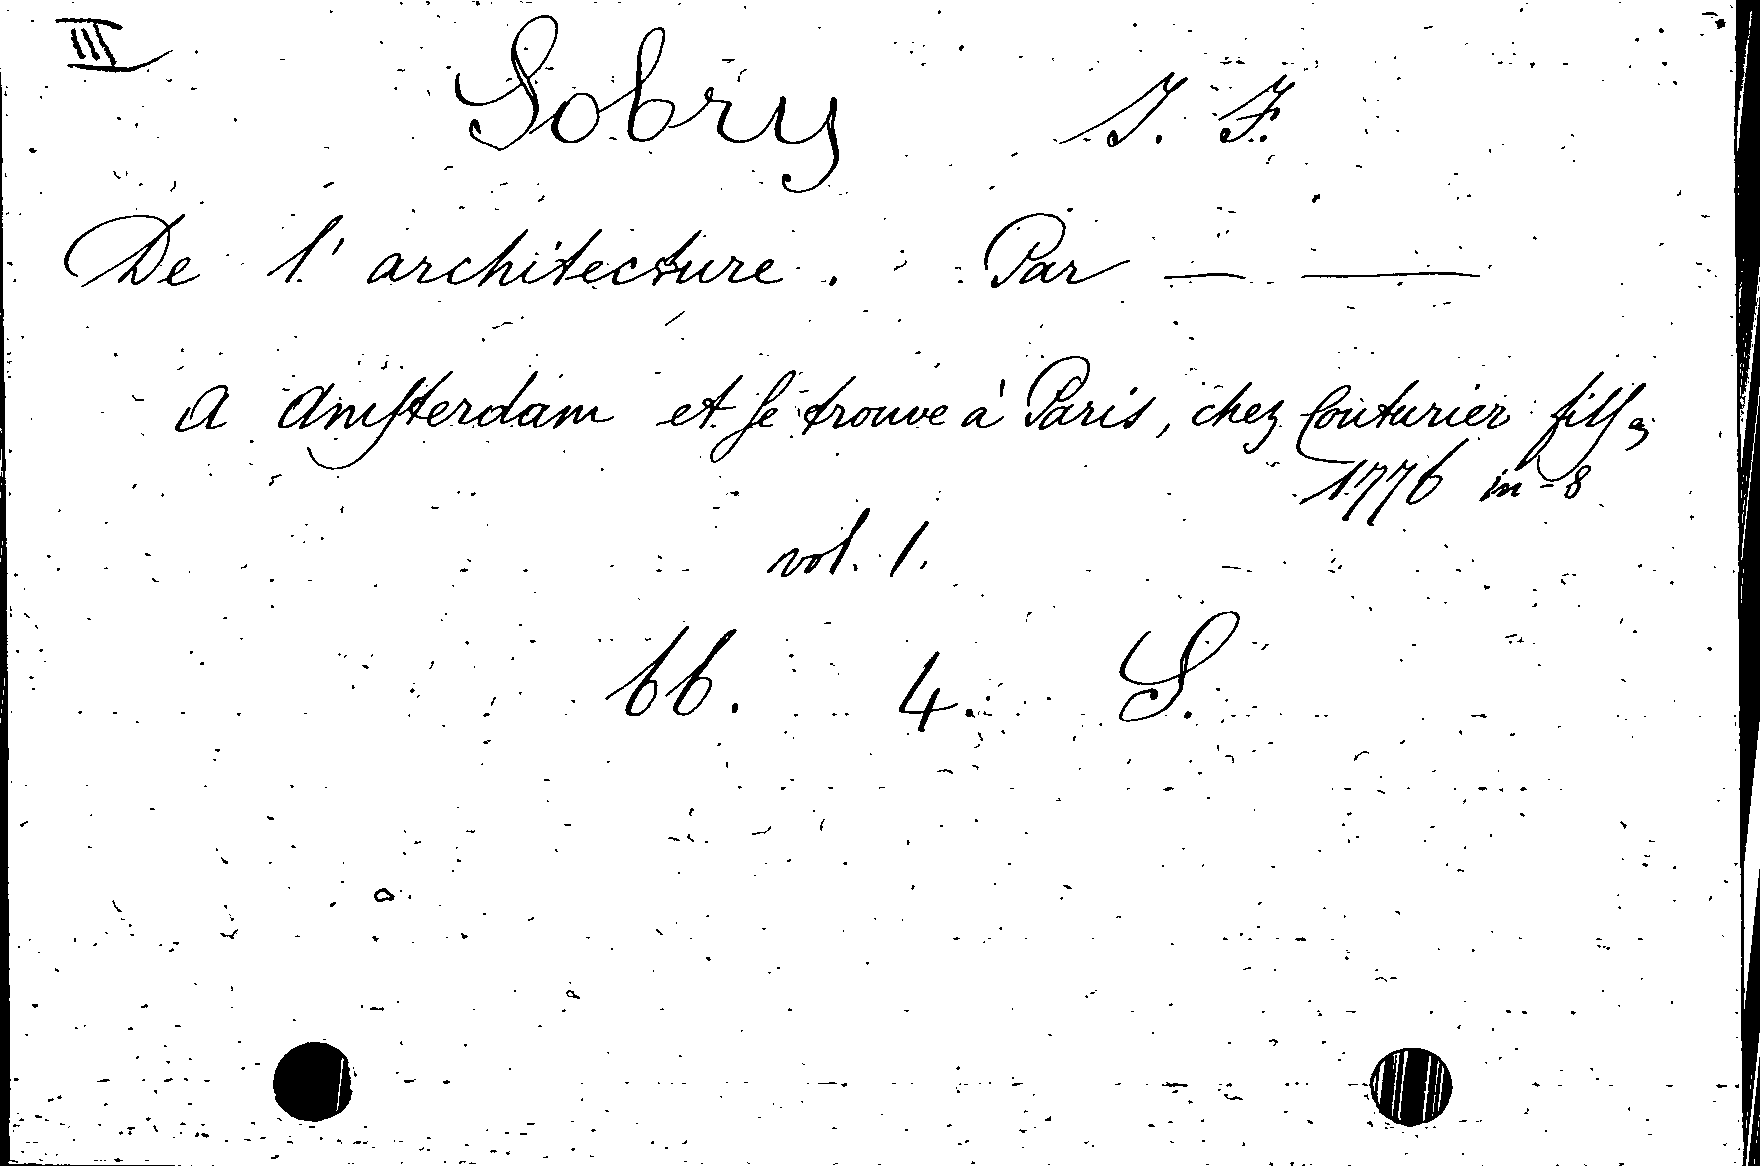 III
Sobry J. F.
De l'architecture. Par — —
A Amſterdam et ſe trouve à Paris, chez Couturier filſ,
1776 in-8
vol. 1.
66. 4. S.